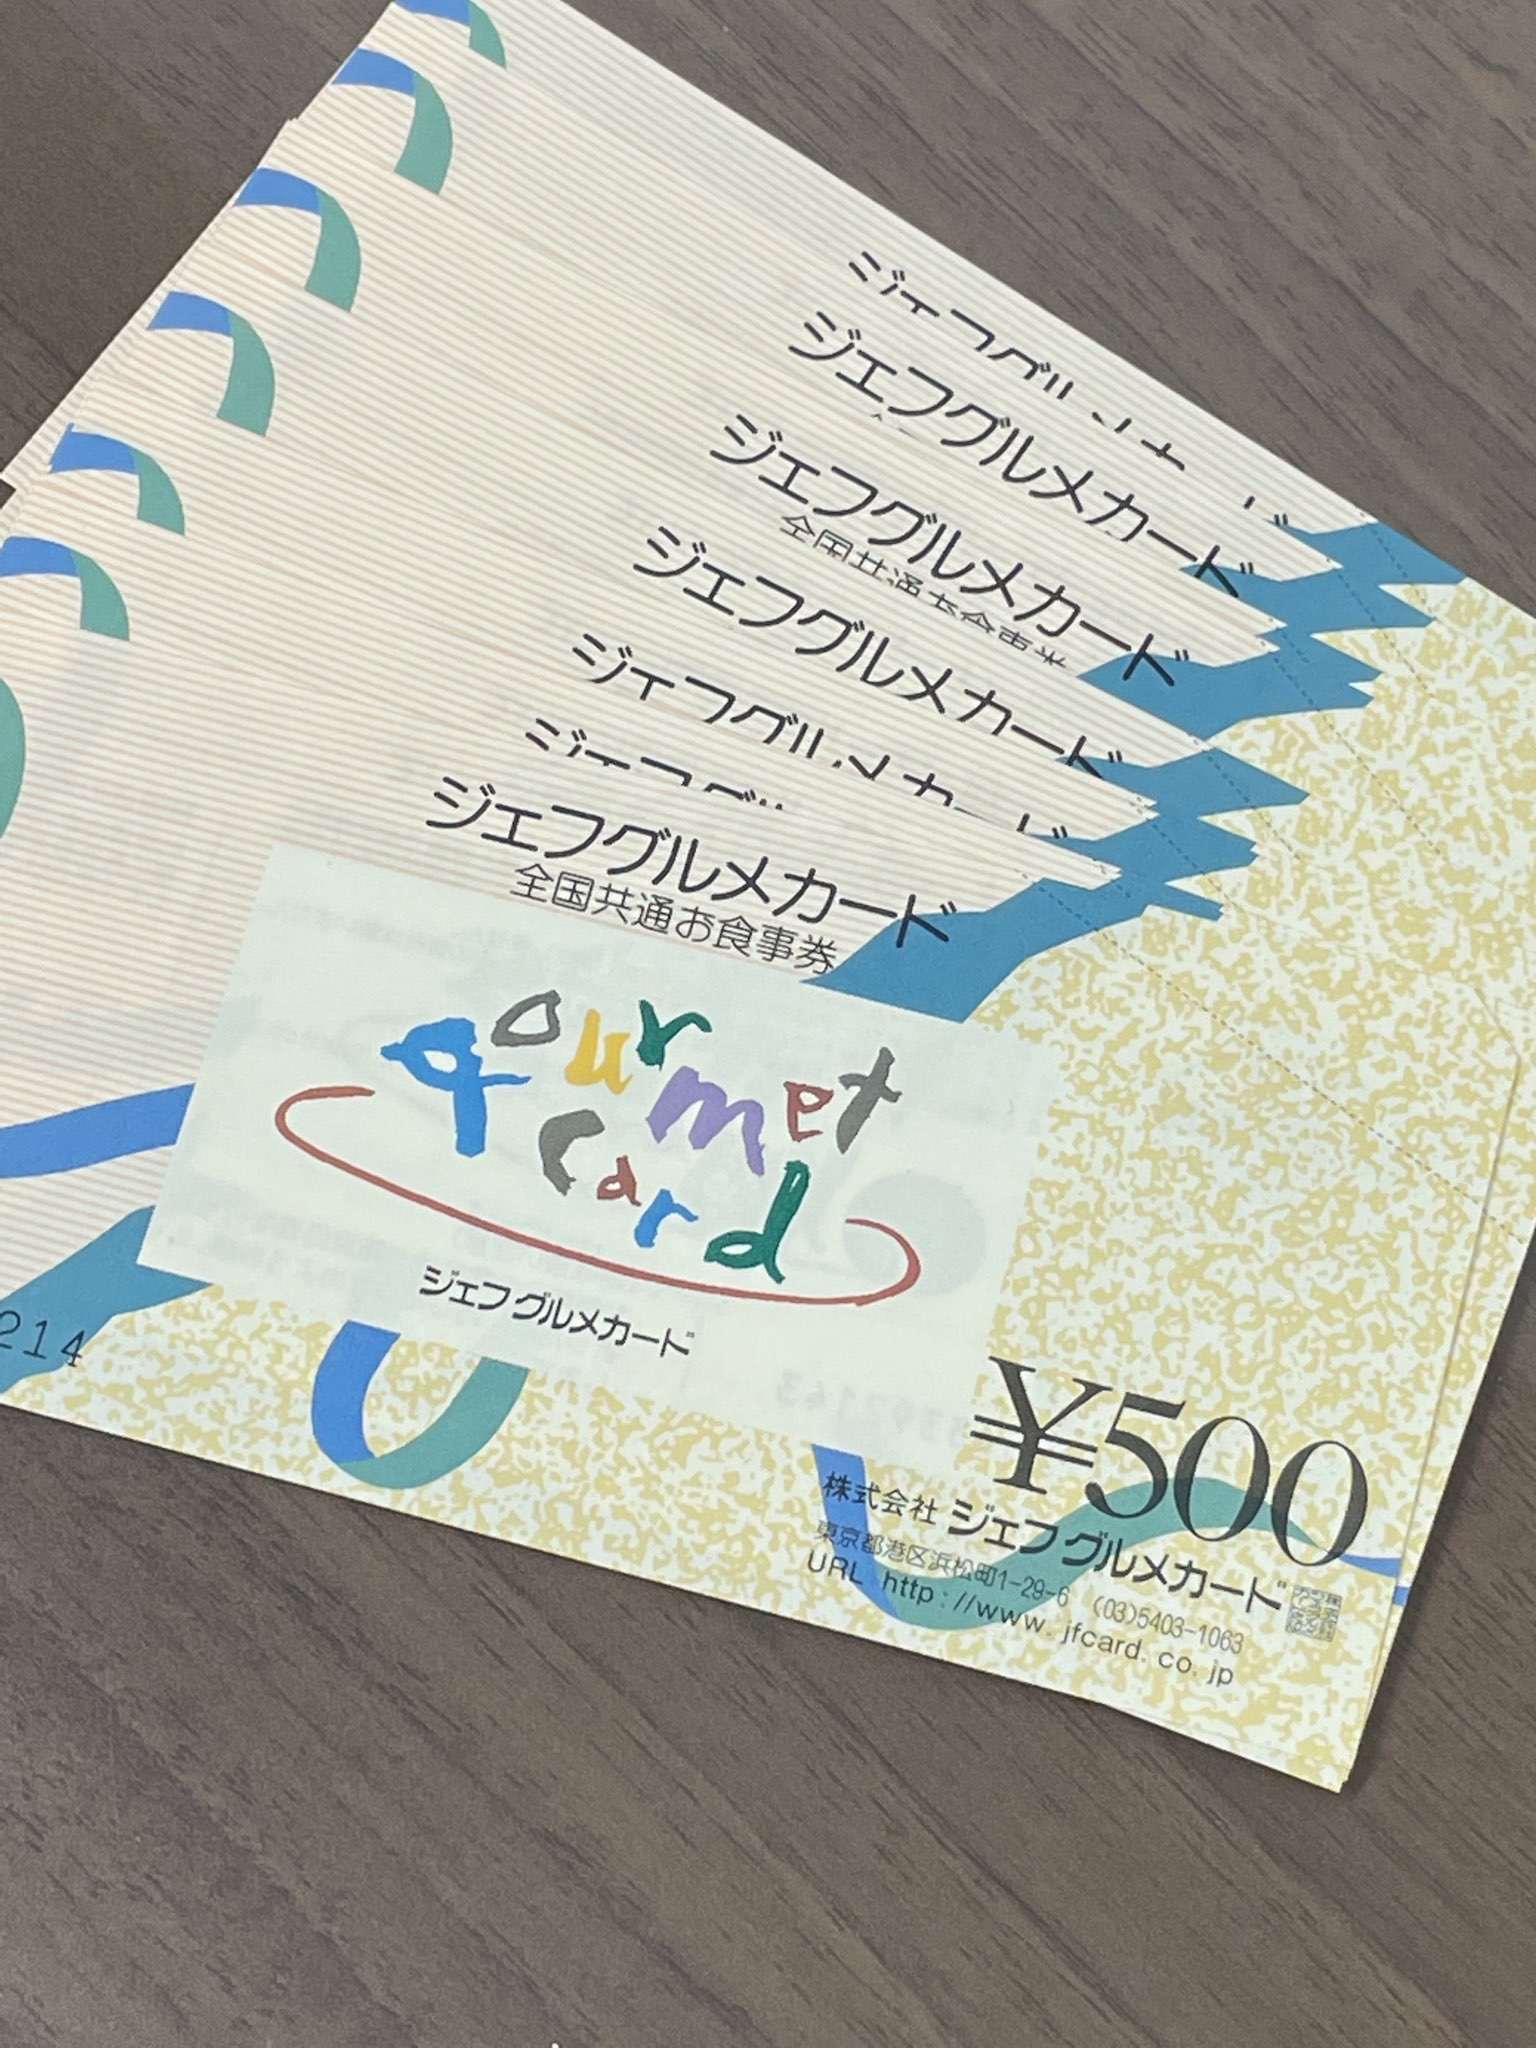 ジェフグルメカード
ジェフグルメカード
ジェフグルメカード
全国共通お食事券
ジェフグルメカード
ジェフグルメカード
ジェフグル
ジェフグルメカード
全国共通お食事券
gourmet
card
ジェフグルメカード
214
¥500
株式会社 ジェフグルメカード
東京都港区浜松町1-29-6 (03)5403-1063
URL http://www.jfcard.co.jp